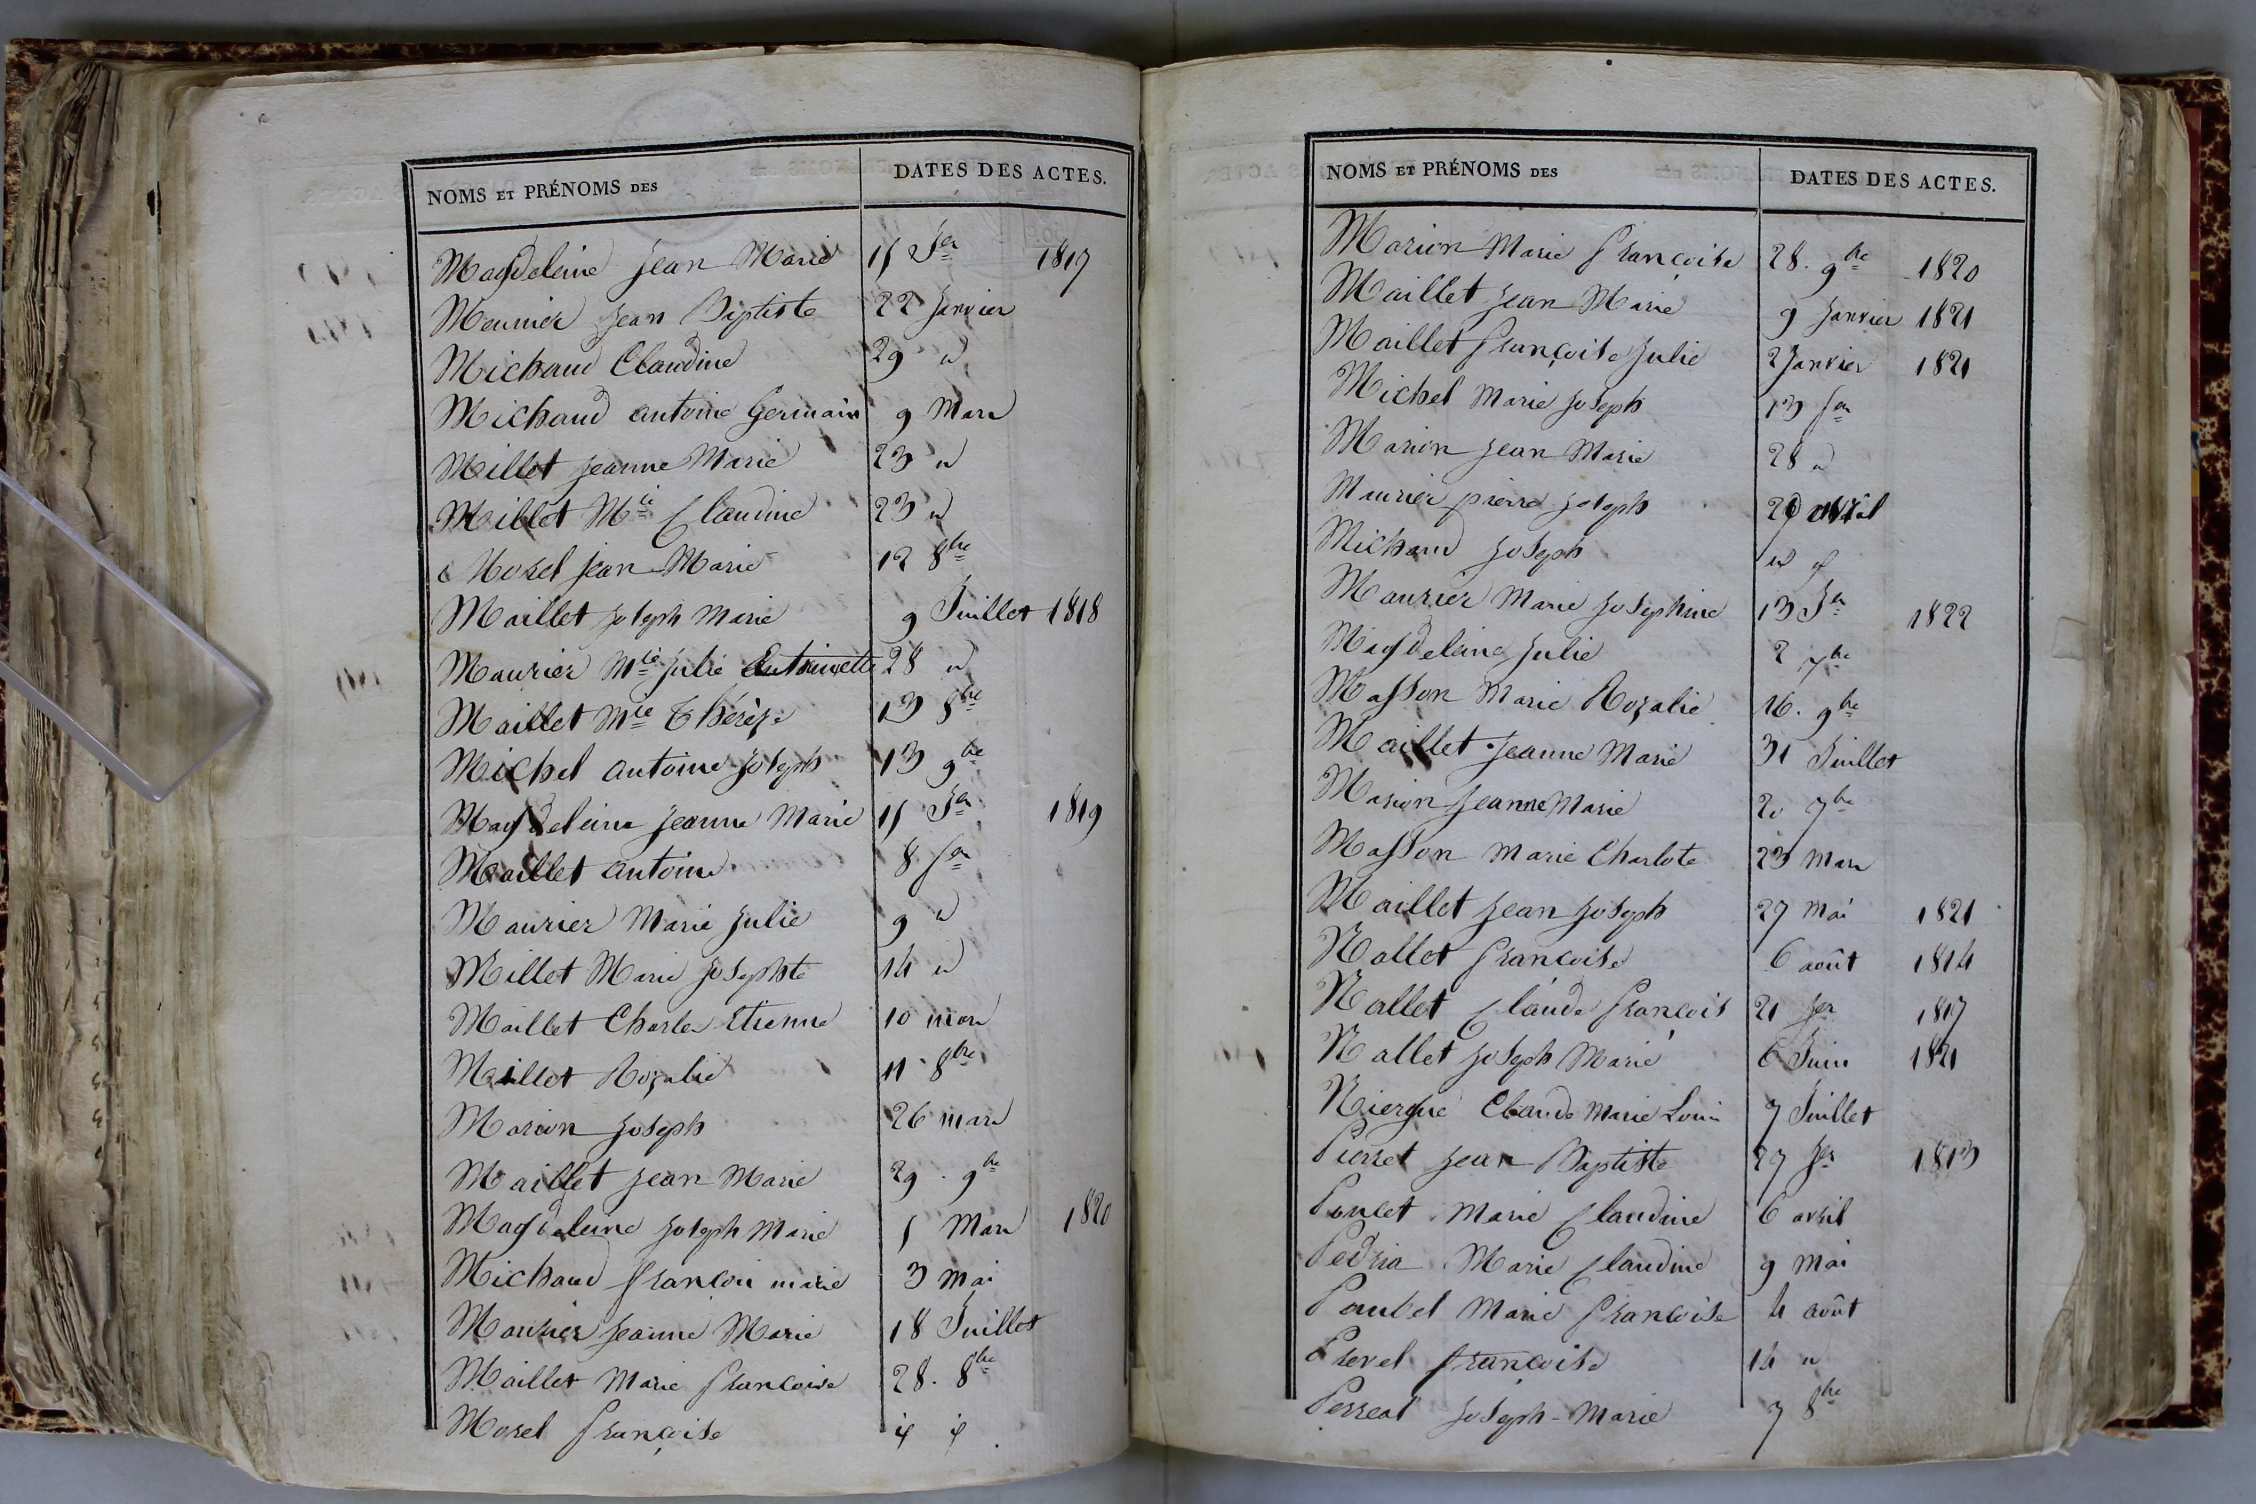 NOMS ET PRÉNOMS DES DATES DES ACTES.
Magdeleine Jean Marie 15 Jer 1817
Meunier Jean Baptiste 22 Janvier
Michaud Claudine 29 id
Michaud antoine Germain 9 Mars
Millet Jeanne Marie 23 id
Millet Mie Claudine 23 id
Morel Jean Marie 12 8bre
Maillet Joseph Marie 9 Juillet 1818
Maurier Mie Julie Antoinette 28 id
Maillet Mie Thérèze 13 8bre
Michel antoine Joseph 13 9bre
Magdeleine Jeanne Marie 15 Jer 1819
Maillet antoine 8 fer
Maurier Marie Julie 9 id
Millet Marie Josephte 14 id
Maillet Charles Etienne 10 mars
Maillet Rozalie 11 8bre
Marion Joseph 26 mars
Maillet Jean Marie 29. 9bre
Magdeleine Joseph Marie 5 Mars 1820
Michaud François marie 3 Mai
Maurier Jeanne Marie 18 Juillet
Maillet Marie Françoise 28. 8bre
Morel Françoise
NOMS ET PRÉNOMS DES DATES DES ACTES.
Marion Marie Françoise 28. 9bre 1820
Maillet Jean Marie 9 Janvier 1821
Maillet Françoise Julie 2 Janvier 1821
Michel Marie Joseph 13 fer
Marion Jean Marie 28 id
Maurier pierre Joseph 29 avril
Michaud Joseph id
Maurier Marie Josephine 13 Jer 1822
Magdeleine Julie 2 7bre
Masson Marie Rozalie 16. 9bre
Maillet Jeanne Marie 31 Juillet
Marion Jeanne Marie 20 7bre
Masson Marie Charlote 23 Mars
Maillet Jean Joseph 27 Mai 1821
Nallet Françoise 6 août 1814
Nallet Claude François 21 Jer 1817
Nallet Joseph Marie 6 Juin 1821
Niergue Claude Marie Louis 7 Juillet
Pierret Jean Baptiste 27 Jer 1813
Poncet Marie Claudine 6 avril
Pedria Marie Claudine 9 Mai
Poubel Marie Françoise 4 août
Prevel Françoise 14 id
Perreal Joseph-Marie 7 8bre